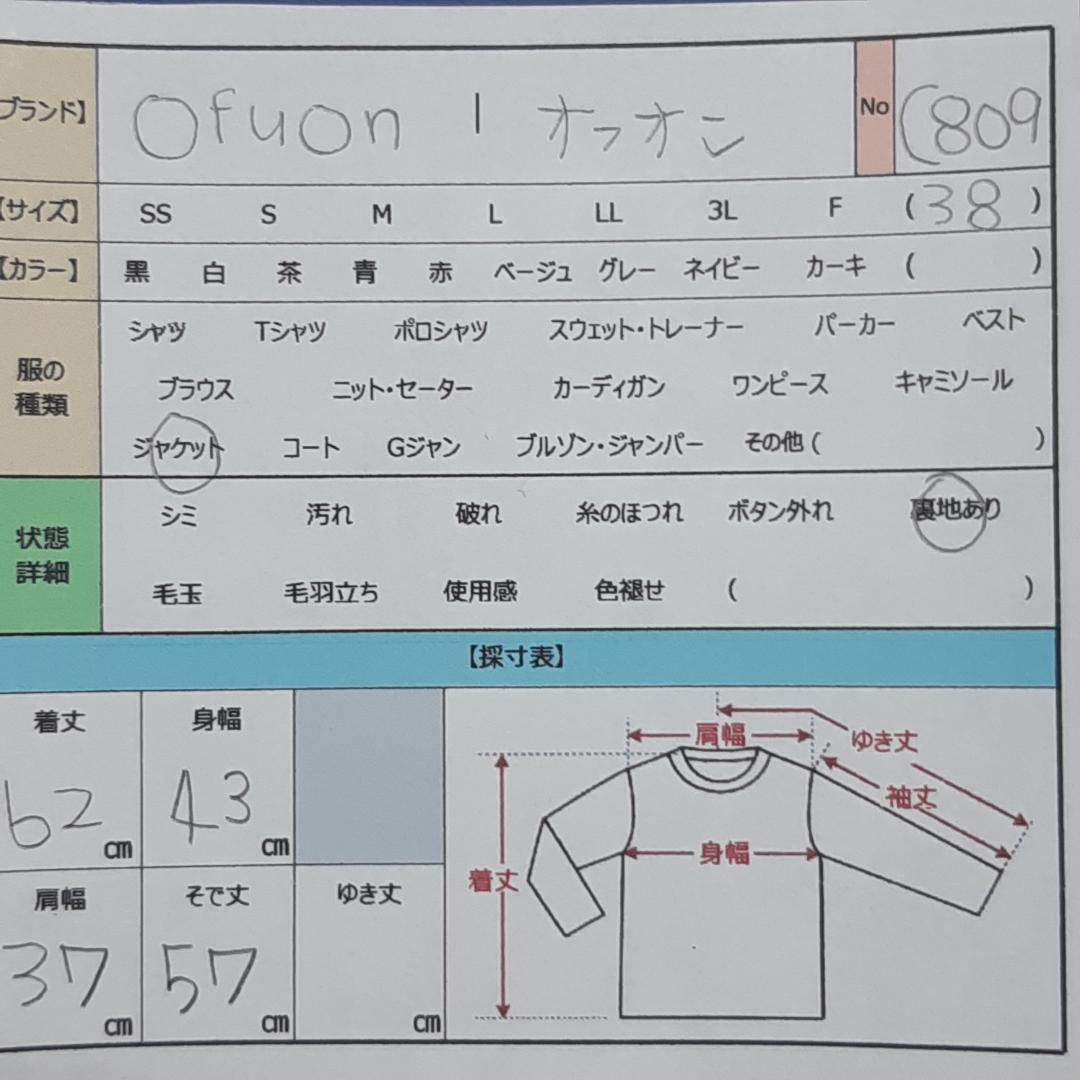 ブランド】 Ofuon | オフオン No (809
【サイズ】 SS S M L LL 3L F (38)
【カラー】 黒 白 茶 青 赤 ベージュ グレー ネイビー カーキ ( )
服の
種類
シャツ Tシャツ ポロシャツ スウェット・トレーナー パーカー ベスト
ブラウス ニット・セーター カーディガン ワンピース キャミソール
ジャケット コート Gジャン ブルゾン・ジャンパー その他( )
状態
詳細
シミ 汚れ 破れ 糸のほつれ ボタン外れ 裏地あり
毛玉 毛羽立ち 使用感 色褪せ ( )
【採寸表】
着丈 身幅
62cm 43cm
肩幅 そで丈 ゆき丈
37cm 57cm cm
肩幅
ゆき丈
袖丈
身幅
着丈